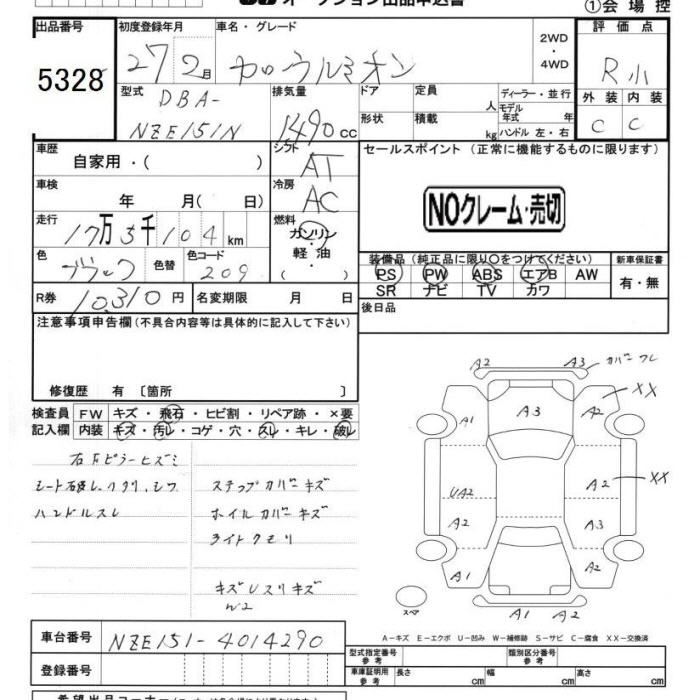 オークション出品申込書
①会場控
出品番号 初度登録年月 車名・グレード 2WD ・ 4WD 評価点
5328 27 2月 カローラルミオン R小
型式 DBA- NZE151N 排気量 1490 cc ドア 定員 人 ディーラー・並行 モデル年式 年
形状 積載 kg ハンドル 左・右 外装 内装
C C
車歴 自家用・( ) シフト AT セールスポイント(正常に機能するものに限ります)
車検 年 月( 日) 冷房 AC NOクレーム・売切
走行 17万5千104 km 燃料 ガソリン・軽油 ( )
色 ブラック 色替 色コード 209 装備品(純正品に限り○をつけてください) 新車保証書
PS PW ABS エアB AW 有・無
SR ナビ TV カワ
R券 10,310円 名変期限 月 日 後日品
注意事項申告欄(不具合内容等は具体的に記入して下さい)
修復歴 有〔箇所 〕
検査員記入欄 FW キズ・飛石・ヒビ割・リペア跡・×要
内装 キズ・汚レ・コゲ・穴・スレ・キレ・破レ
右Fピラーヒズミ
シート破レ・ヘタリ・シワ ステップカバーキズ
ハンドルスレ ホイルカバーキズ
ライトクモリ
キズUスリキズ
W2
A2 A3 カバーワレ
XX
A1 A3 A2
XX
UA2 A2
A2 A3
A1 A2
スペア A1 A2
A-キズ E-エクボ U-凹み W-補修跡 S-サビ C-腐食 XX-交換済
車台番号 NZE151-4014290 型式指定番号 参考 類別区分番号 参考
登録番号 車庫証明用 参考 長さ cm 幅 cm 高さ cm